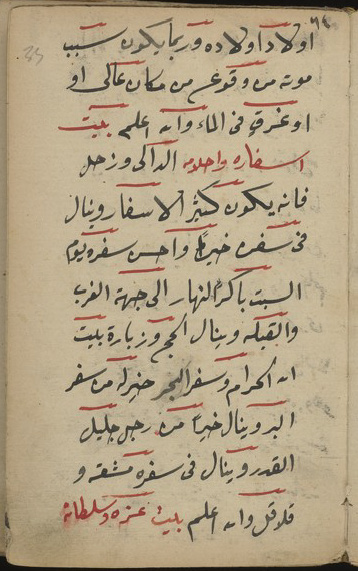 ٦٤
اولاد اولاده وربما يكون سبب
موته من وقوعه من مكان عالى او
او غرق فى الماء والله اعلم بليت
اسفاره واحلامه الدالى وزحل
فانه يكون كثير الاسفار وينال
فى سفره خيرا واحسن سفره يوم
السبت باكر النهار الى جهة الغرب
والقبله وينال الحج وزيارة بليت
الله الحرام وسفر البحر خير له من سفر
البر وينال خيرا من رجل جليل
القدر وينال فى سفره مشقه و
قلاقل والله اعلم بليت عزه وسلطانه